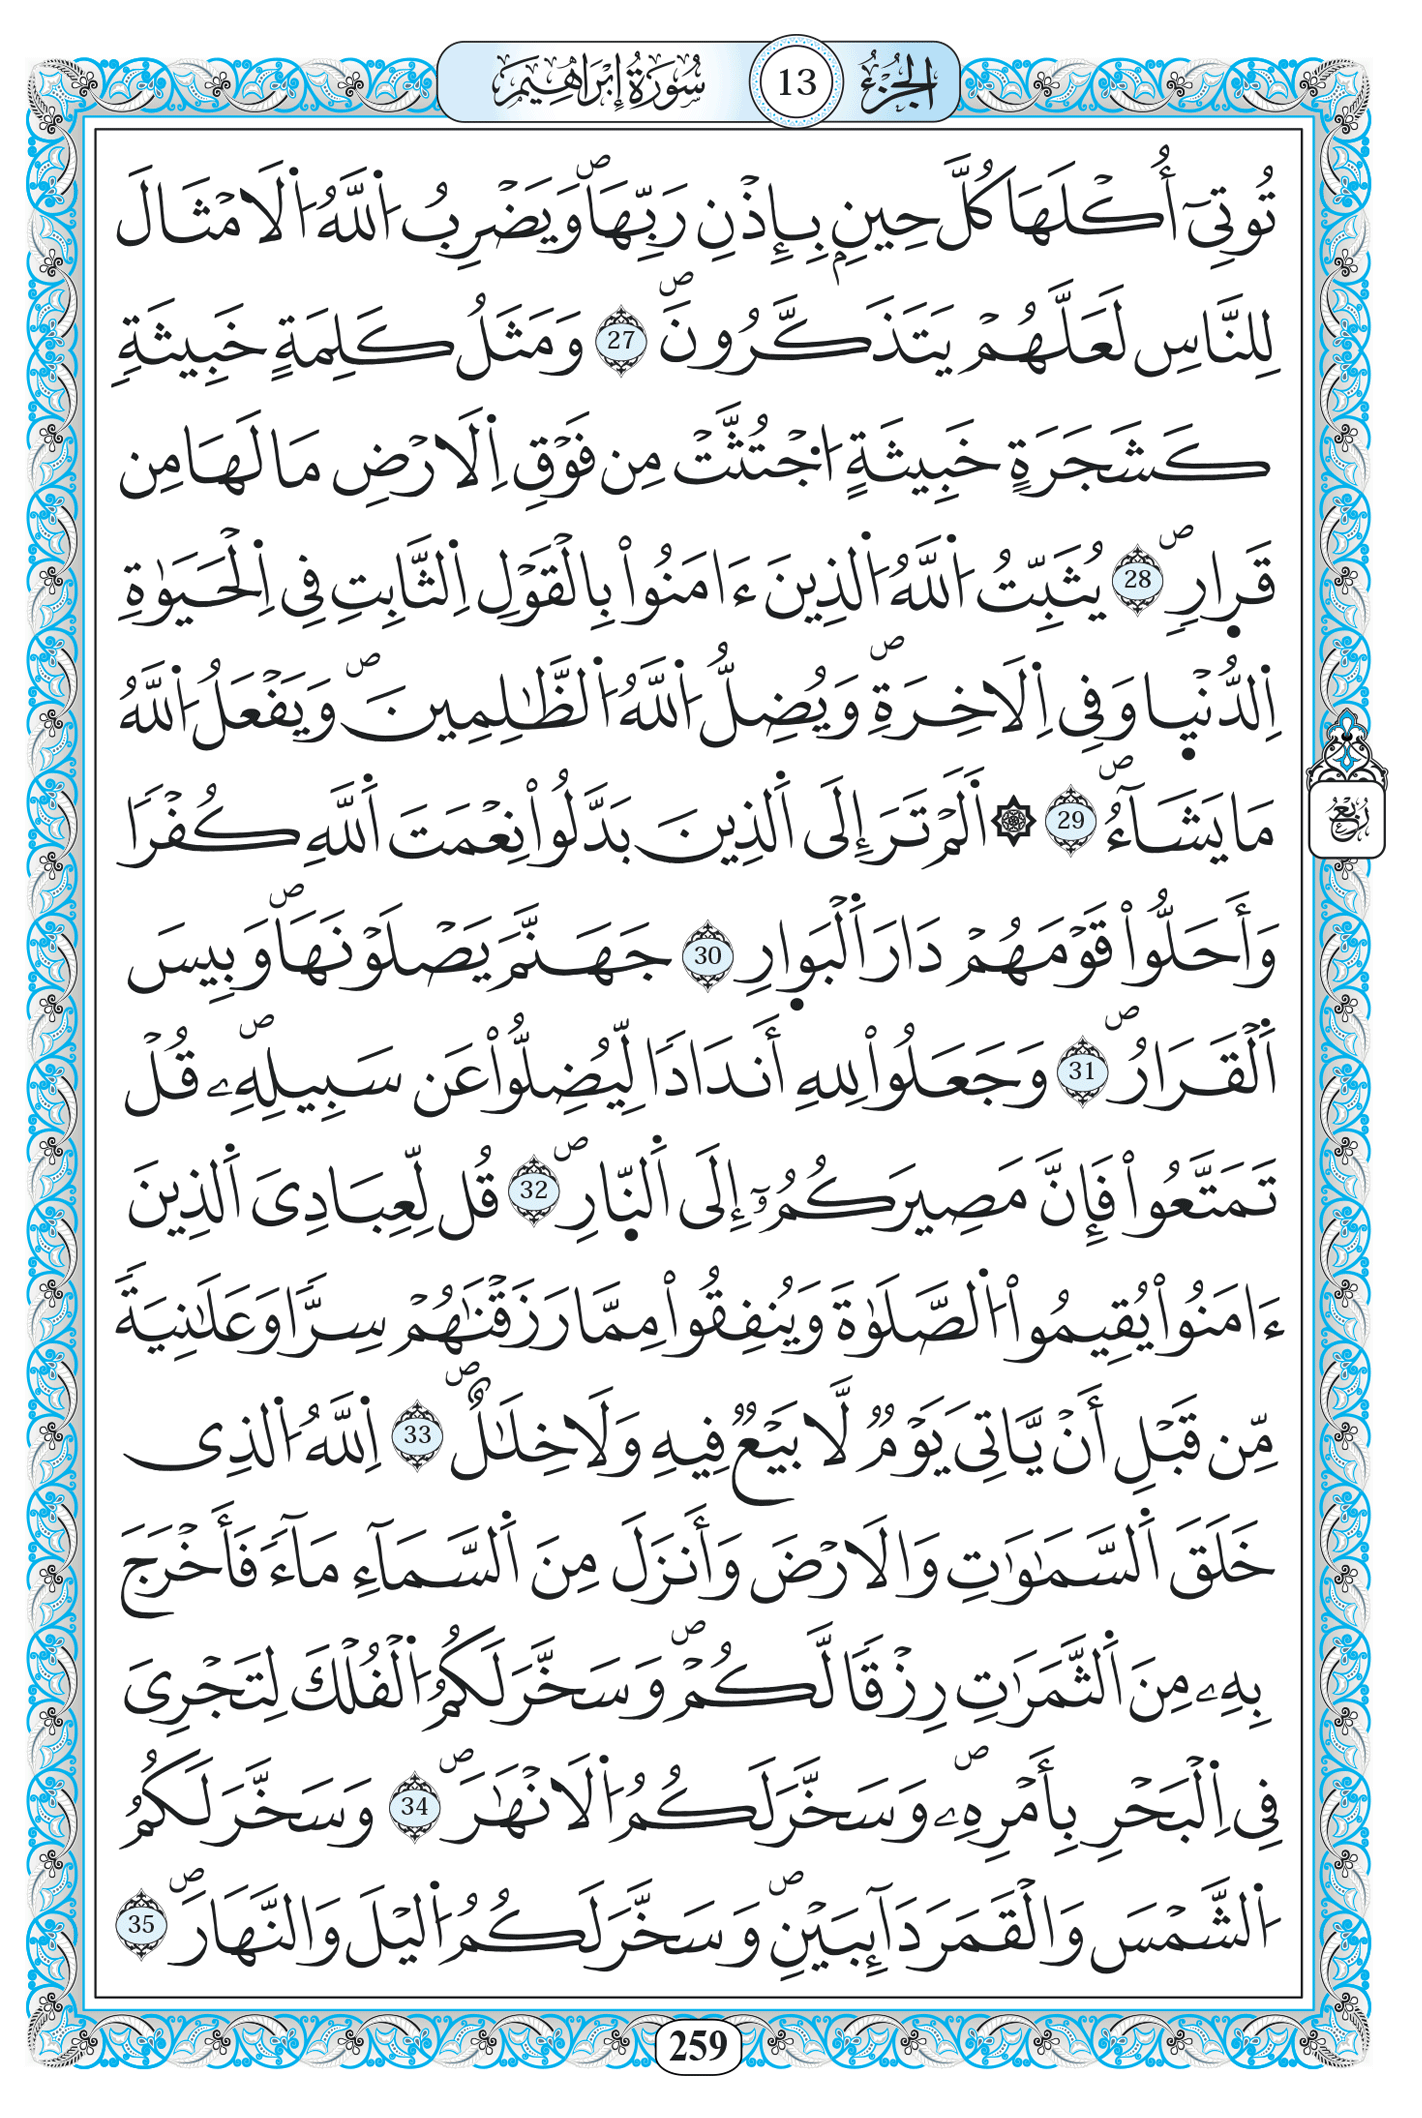 الجزء 13 سورة إبراهيم
تُوتِےٓ أُكْلَهَا كُلَّ حِينِۢ بِإِذْنِ رَبِّهَاۖ وَيَضْرِبُ اُ۬للَّهُ اُ۬لَامْثَالَ
لِلنَّاسِ لَعَلَّهُمْ يَتَذَكَّرُونَۖ 27 وَمَثَلُ كَلِمَةٍ خَبِيثَةٖ
كَشَجَرَةٍ خَبِيثَةٍ اُ۟جْتُثَّتْ مِن فَوْقِ اِ۬لَارْضِ مَا لَهَا مِن
قَرٍ۪ارٖۖ 28 يُثَبِّتُ اُ۬للَّهُ اُ۬لذِينَ ءَامَنُواْ بِالْقَوْلِ اِ۬لثَّابِتِ فِے اِ۬لْحَيَوٰةِ
اِ۬لدُّنْي۪ا وَفِے اِ۬لَاخِرَةِۖ وَيُضِلُّ اُ۬للَّهُ اُ۬لظَّٰلِمِينَۖ وَيَفْعَلُ اُ۬للَّهُ
مَا يَشَآءُۖ 29 ۞ أَلَمْ تَرَ إِلَى اَ۬لذِينَ بَدَّلُواْ نِعْمَتَ اَ۬للَّهِ كُفْراٗ
وَأَحَلُّواْ قَوْمَهُمْ دَارَ اَ۬لْبَو۪ارِ 30 جَهَنَّمَ يَصْلَوْنَهَاۖ وَبِيسَ
اَ۬لْقَرَارُۖ 31 وَجَعَلُواْ لِلهِ أَندَاداٗ لِّيُضِلُّواْ عَن سَبِيلِهِۦۖ قُلْ
تَمَتَّعُواْ فَإِنَّ مَصِيرَكُمُۥٓ إِلَى اَ۬لنّ۪ارِۖ 32 قُل لِّعِبَادِيَ اَ۬لذِينَ
ءَامَنُواْ يُقِيمُواْ اُ۬لصَّلَوٰةَ وَيُنفِقُواْ مِمَّا رَزَقْنَٰهُمْ سِرّاٗ وَعَلَٰنِيَةٗ
مِّن قَبْلِ أَنْ يَّاتِيَ يَوْمٞ لَّا بَيْعٞ فِيهِ وَلَا خِلَٰلٌۖ 33 اِ۬للَّهُ اُ۬لذِے
خَلَقَ اَ۬لسَّمَٰوَٰتِ وَالَارْضَ وَأَنزَلَ مِنَ اَ۬لسَّمَآءِ مَآءٗ فَأَخْرَجَ
بِهِۦ مِنَ اَ۬لثَّمَرَٰتِ رِزْقاٗ لَّكُمْۖ وَسَخَّرَ لَكُمُ اُ۬لْفُلْكَ لِتَجْرِيَ
فِے اِ۬لْبَحْرِ بِأَمْرِهِۦۖ وَسَخَّرَ لَكُمُ اُ۬لَانْهَٰرَۖ 34 وَسَخَّرَ لَكُمُ
اُ۬لشَّمْسَ وَالْقَمَرَ دَآئِبَيْنِۖ وَسَخَّرَ لَكُمُ اُ۬ليْلَ وَالنَّهَارَۖ 35
ربع
259